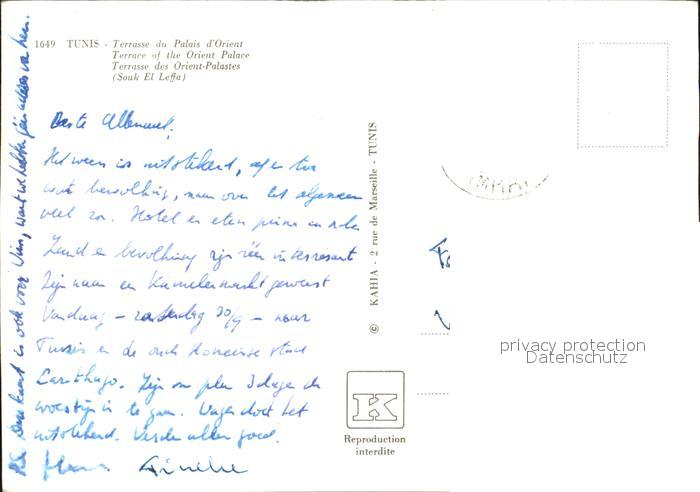 1649 TUNIS - Terrasse du Palais d'Orient
Terrace of the Orient Palace
Terrasse des Orient-Palastes
(Souk El Leffa)
Beste Allemaal,
Het weer is uitstekend, af en toe
wat bewolking, maar over het algemeen
veel zon. Hotel en eten prima in orde
Land en bevolking zijn zéér interessant
Zijn naar een Kamelenmarkt geweest
Vandaag - zaterdag 30/9 - naar
Tunis en de oude Romeinse stad
Carthago. Zijn van plan 3 dagen de
woestijn in te gaan. Wagen doet het
uitstekend. Verder alles goed.
Deze kaart is ook voor Wim, want we hebben géén adres van hem.
© KAHIA - 2 rue de Marseille - TUNIS
K
Reproduction
interdite
privacy protection
Datenschutz